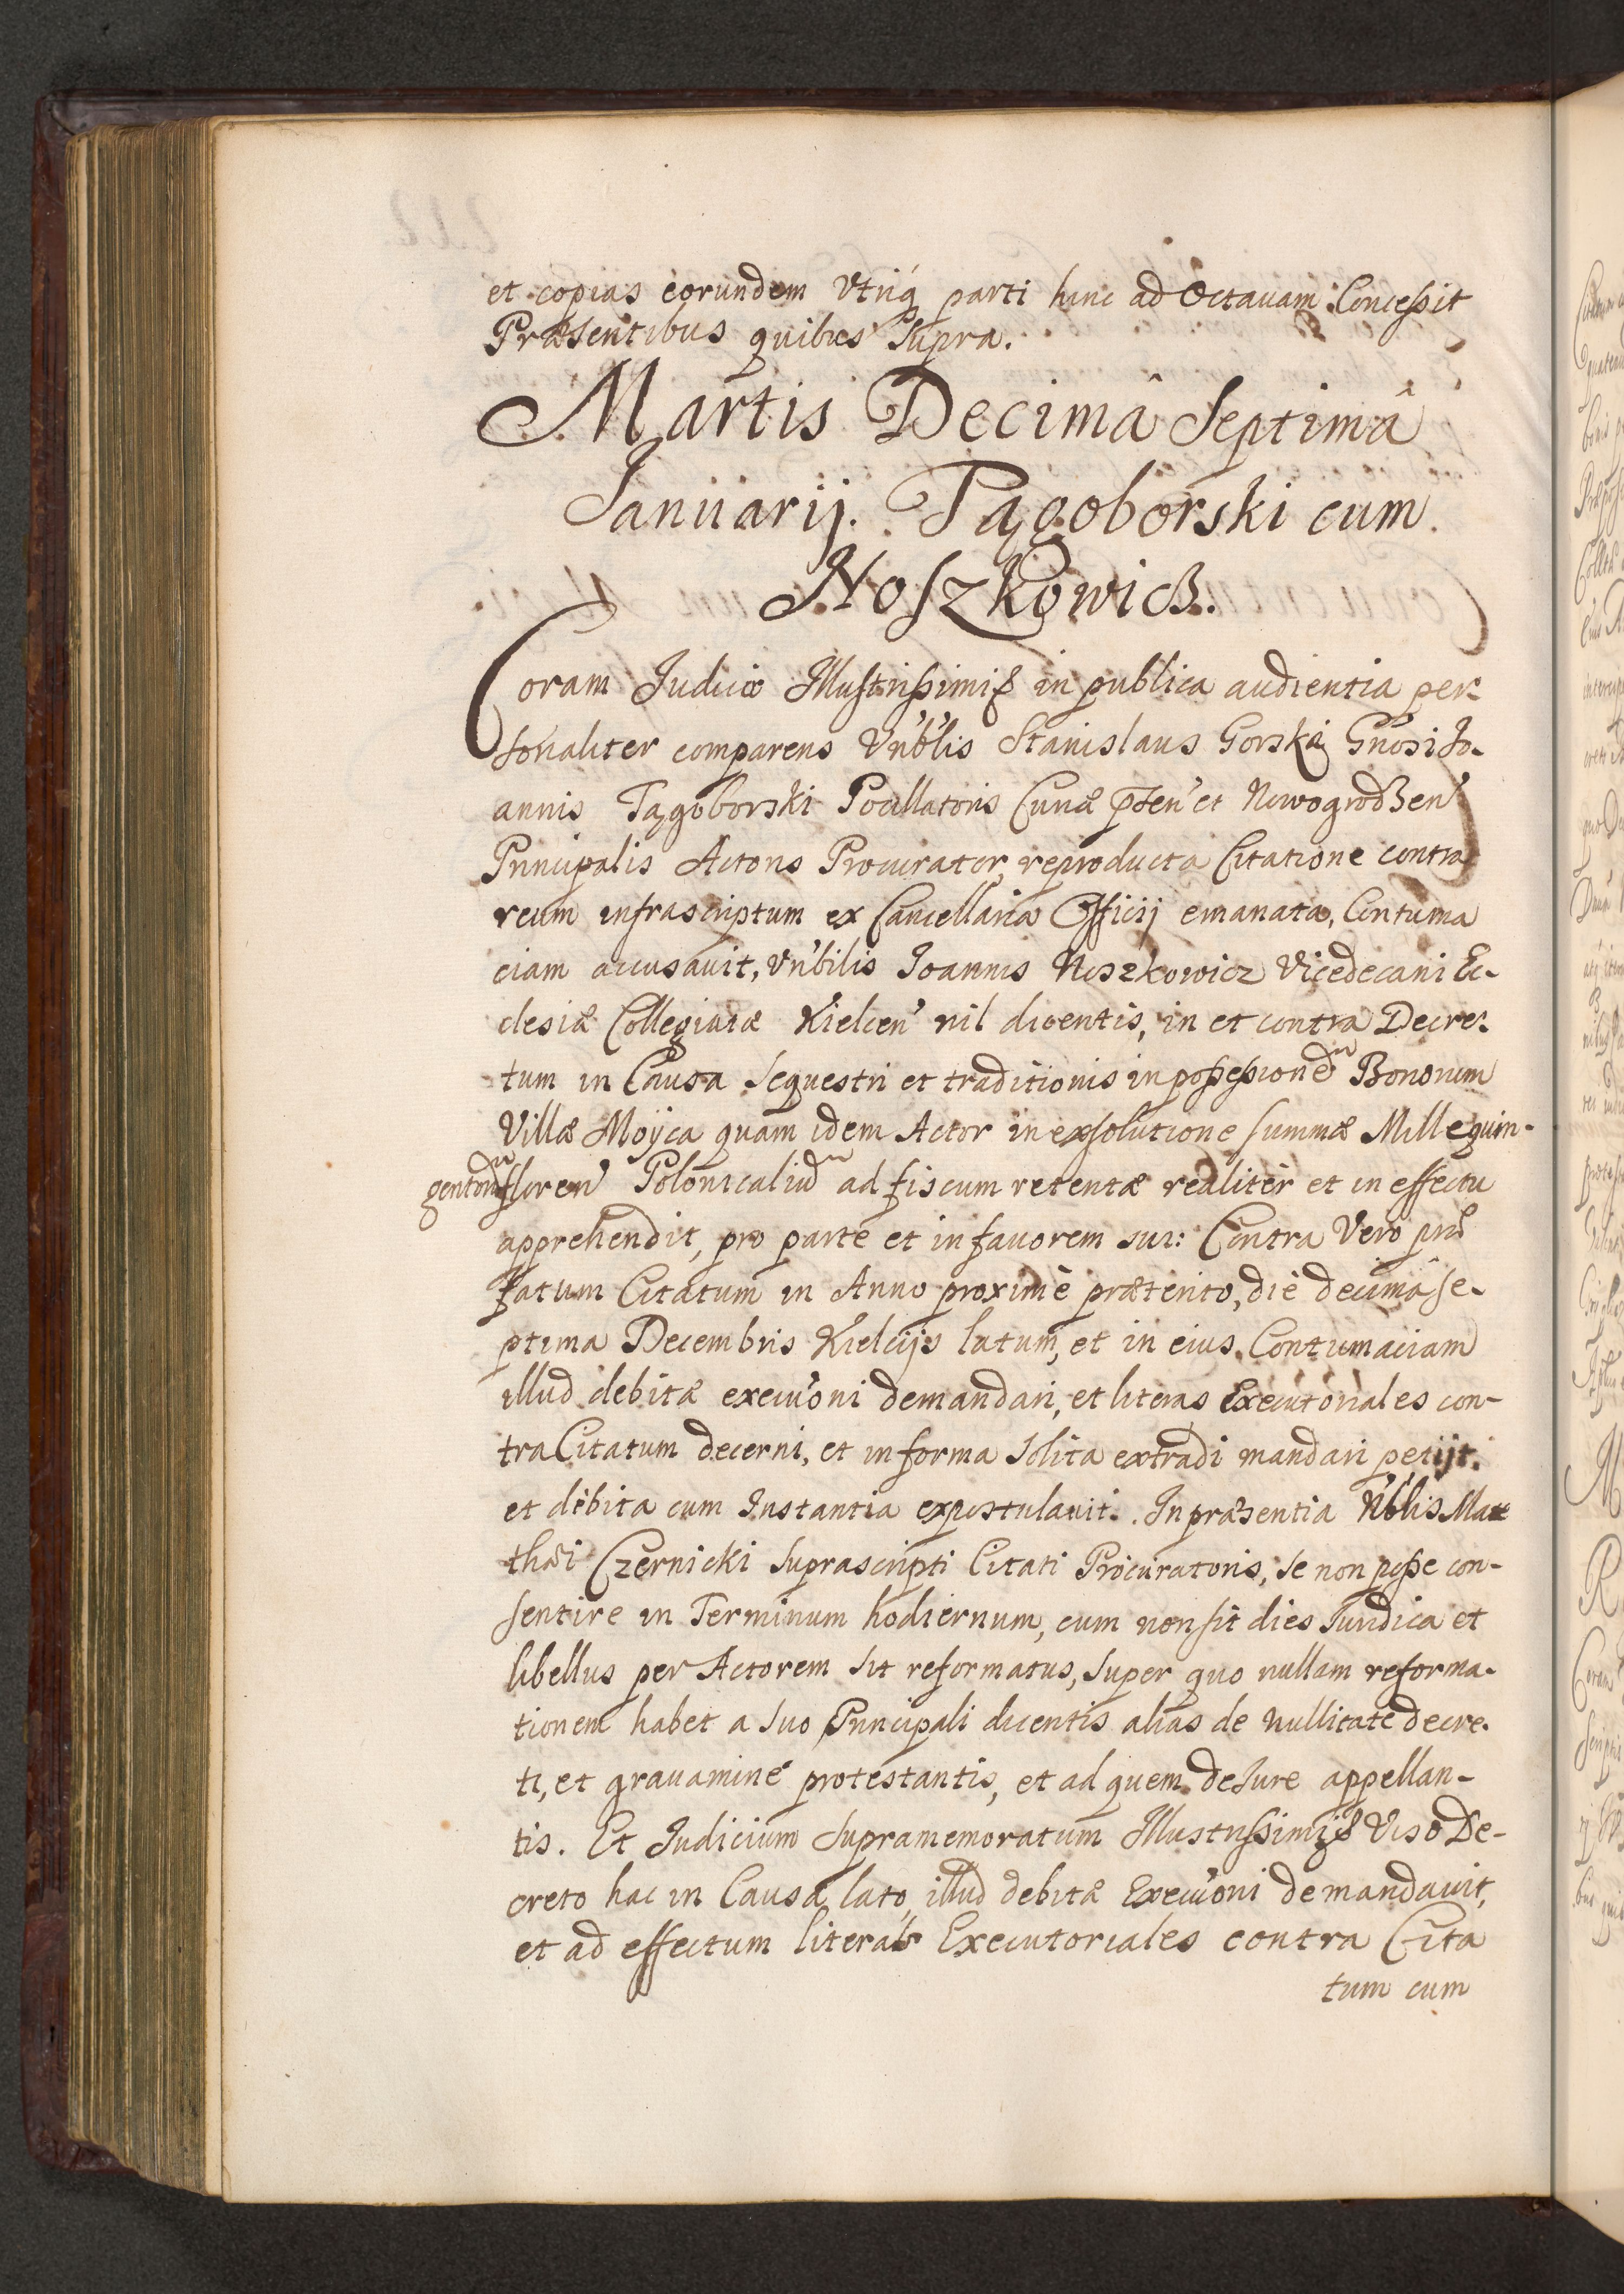 et copias eorundem Vtriq parti hinc ad Octauam Concessit
Præsentibus quibus supra.
Martis Decimâ Septimâ
Januarij. Tągoborski cum
Noszkowicz.
Coram Judicio Illustrissimi in publica audientia per-
sonaliter comparens Vn'b'lis Stanislaus Gorski G'nosi Jo-
annis Tągoborski Pocillatoris Curiæ p̃sen' et Nowogrodzen'
Principalis Actoris Procurator, reproducta Citatione contra
reum infrascriptum ex Cancellaria Officij emanata, Contuma
ciam accusauit, Vn'bilis Joannis Noszkowicz Vicedecani Ec-
clesiæ Collegiatæ Kielcen' nil dicentis, in et contra Decre-
tum in Causa sequestri et traditionis in possessionē Bonorum
Villæ Moÿca quam idem Actor in exsolutione summæ Mille quin-
gentorū floren' Polonicaliū ad fiscum retentæ realiter et in effectu
apprehendit, pro parte et in fauorem sui: Contra Vero præ
fatum Citatum in Anno proximè præterito, die decimâ se-
ptima Decembris Kielcijs latum, et in eius Contumaciam
illud debitæ execu'oni demandari, et literas Executoriales con-
tra Citatum decerni, et in forma solita extradi mandari petijt.
et debita cum Instantia expostulauit. In præsentia N'b'lis Mat
thæi Czernicki suprascripti Citati Procuratoris, se non posse con-
sentire in Terminum hodiernum, cum non sit dies Juridica et
libellus per Actorem sit reformatus, super quo nullam reforma-
tionem habet a suo Principali dicentis alias de nullitate decre-
ti, et grauamine protestantis, et ad quem de Jure appellan-
tis. Et Judicium supramemoratum Illustrissimi Viso De-
creto hac in Causa lato, illud debitæ Execu'oni demandauit,
et ad effectum literas Executoriales contra Cita
tum cum